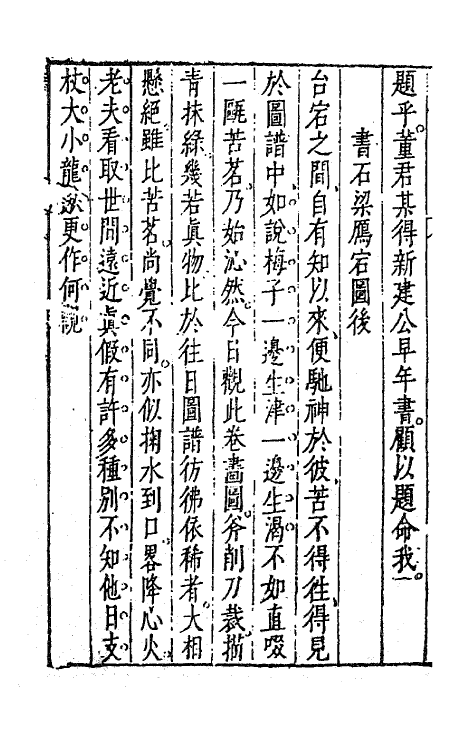 題乎董君某得新建公早年書顧以題命我一
書石梁鴈宕圖後
台宕之間自有知以來便馳神於彼苦不得徃得見
於圖譜中如說梅子一邊生津一邊生渴不如直啜
一甌苦茗乃始沁然今日觀此卷畵圖斧削刀裁描
青抹綠幾若眞物比於往日圖譜彷彿依稀者大相
懸絕雖比苦茗尚覺不同亦似掬水到口畧降心火
老夫看取世間遠近眞假有許多種别不知他日支
杖大小龍湫更作何說